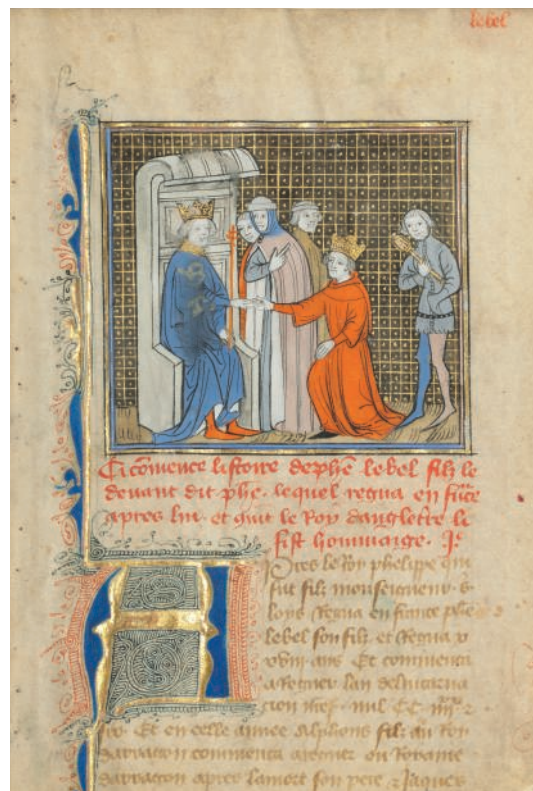 lebel
Ci comence listoire de phe lebel filz le
devant dit phe. lequel regna en fnce
apres lui. et quit le Roy dangleterre li
fist hommaige. Je
Apres le Roy phelippe qui
fut filz monseigneur. s.
loys Regna en france phe
lebel son filz et Regna x
xviii ans Et commenca
a Regner lan de lincarna
cion mil CC iiiixx
Et en celle annee Alphons filz au Roy
darragon commenca a regner ou Royaume
darragon apres la mort son pere. Jaques